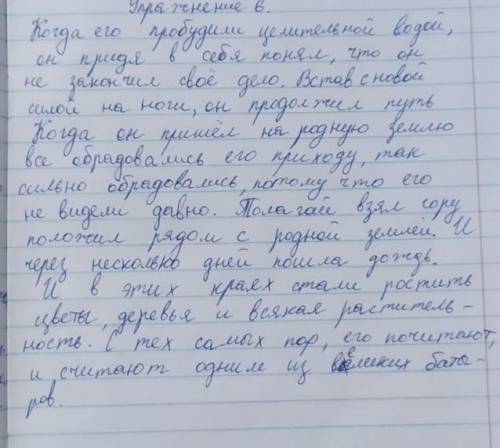 Упражнение 6.
Когда его пробудили целительной водой,
он придя в себя понял, что он
не закончил своё дело. Встав с новой
силой на ноги, он продолжил путь
Когда он пришёл на родную землю
все обрадовались его приходу, так
сильно обрадовались, потому что его
не видели давно. Полагай взял гору
положил рядом с родной землёй. И
через несколько дней пошла дождь.
И в этих краях стали ростить
цветы, деревья и всякая раститель-
ность. С тех самых пор, его почитают,
и считают одним из великих баты-
ров.